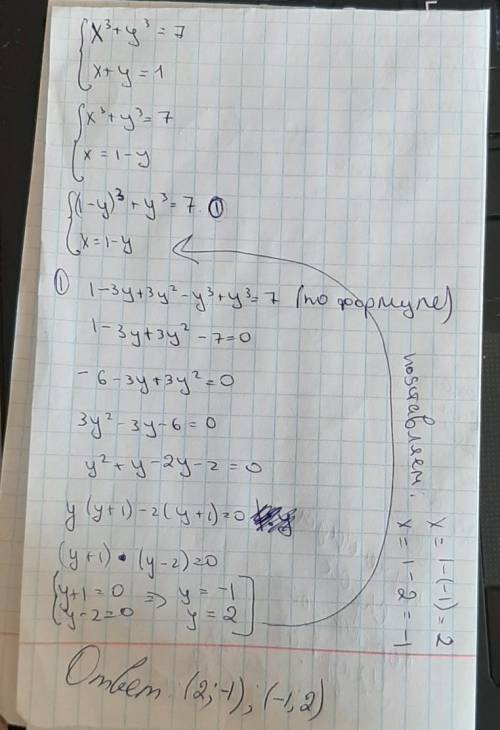 x³+y³=7
x+y=1
x³+y³=7
x=1-y
(1-y)³+y³=7 ①
x=1-y
① 1-3y+3y²-y³+y³=7 (по формуле)
1-3y+3y²-7=0
-6-3y+3y²=0
3y²-3y-6=0
y²+y-2y-2=0
y(y+1)-2(y+1)=0
(y+1)·(y-2)=0
y+1=0 => y=-1
y-2=0 y=2
подставляем: x=1-(-1)=2
x=1-2=-1
Ответ: (2;-1); (-1;2)